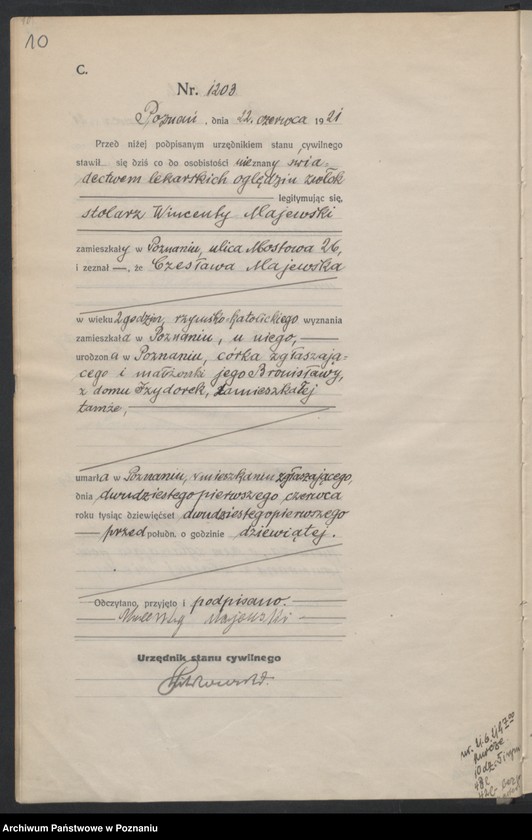 10
C.
Nr. 1203
Poznań, dnia 22. czerwca 1921
Przed niżej podpisanym urzędnikiem stanu cywilnego
stawił się dziś co do osobistości nieznany świa-
dectwem lekarskich oględzin zwłok
legitymując się,
stolarz Wincenty Majewski
zamieszkały w Poznaniu, ulica Mostowa 26,
i zeznał —, że Czesława Majewska
w wieku 2 godzin, rzymsko-katolickiego wyznania
zamieszkała w Poznaniu, u niego,
urodzona w Poznaniu, córka zgłaszają-
cego i małżonki jego Bronisławy,
z domu Izydorek, zamieszkałej
tamże,
umarła w Poznaniu, w mieszkaniu zgłaszającego,
dnia dwudziestego pierwszego czerwca
roku tysiąc dziewięćset dwudziestego pierwszego
— przed połudn. o godzinie dziewiątej.
Odczytano, przyjęto i podpisano.
Majewski
Urzędnik stanu cywilnego
Archiwum Państwowe w Poznaniu